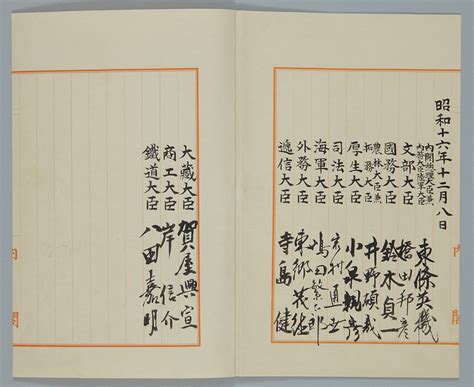 昭和十六年十二月八日
内閣總理大臣兼
内務大臣陸軍大臣 東條英機
文部大臣 橋田邦彦
國務大臣 鈴木貞一
農林大臣兼
拓務大臣 井野碩哉
厚生大臣 小泉親彦
司法大臣 岩村通世
海軍大臣 嶋田繁太郎
外務大臣 東郷茂徳
遞信大臣 寺島健
大藏大臣 賀屋興宣
商工大臣 岸信介
鐵道大臣 八田嘉明
内閣
内閣